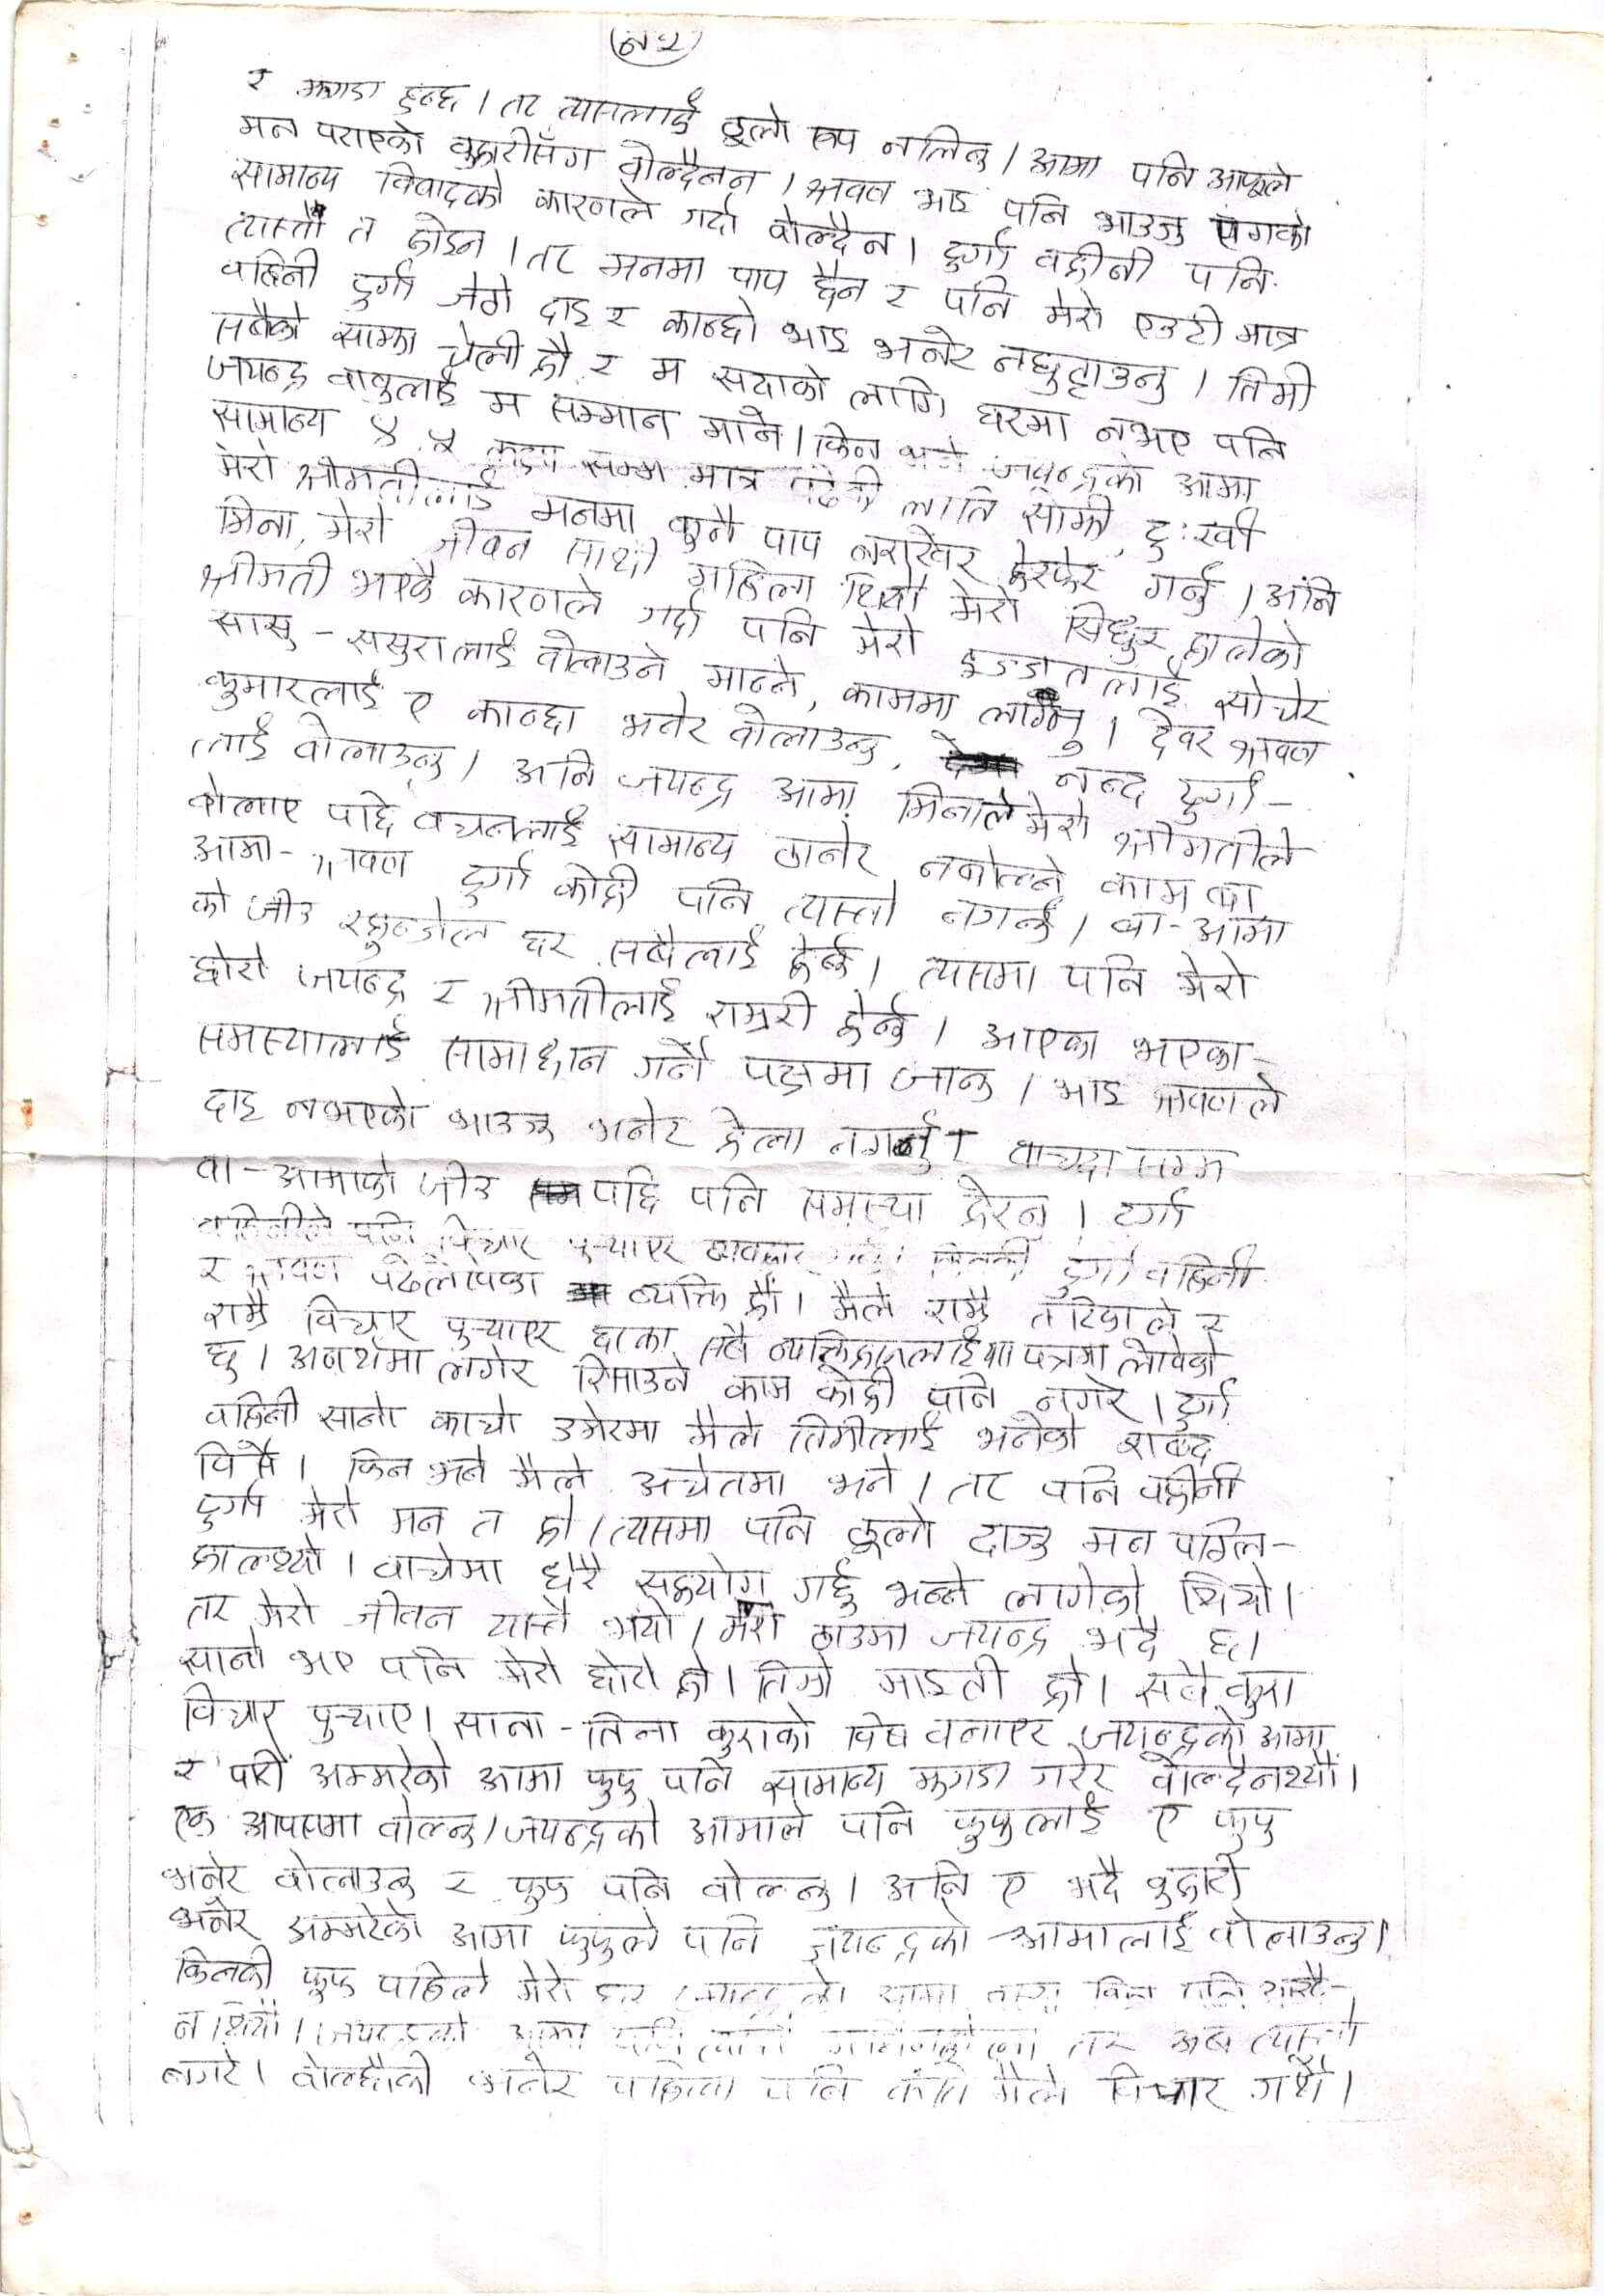 (न २)
र झगडा हुन्छ । तर त्यसलाई ठूलो रुप नलिनु । आमा पनि आफूले
मन पराएको बुहारीसँग बोल्दैनन । श्रवण भाइ पनि भाउजु संगको
सामान्य विवादको कारणले गर्दा बोल्दैन । दुर्गा बहीनी पनि
त्यास्तै त होइन । तर मनमा पाप छैन र पनि मेरो एउटी मात्र
बहिनी दुर्गा जेठो दाइ र कान्छो भाइ भनेर नछुट्टाउनु । तिमी
सबैको साझा चेली हौ र म सदाको लागि घरमा नभए पनि
जयन्द्र बाबुलाई म सम्मान माने । किन भने जयन्द्रको आमा
सामान्य ४ ५ कक्षा सम्म मात्र पढेकी लाति सोझी, दुःखी
मेरो श्रीमतीलाई मनमा कुनै पाप नराखेर हेरफेर गर्नु । अनि
मिना, मेरो जीवन साथी महिला थियौ मेरो सिंधुर हालेको
श्रीमती भएकै कारणले गर्दा पनि मेरो इज्जतलाई सोचेर
सासु - ससुरालाई बोलाउने मान्ने, काममा लाग्नु । देवर श्रवण
कुमारलाई ए कान्छा भनेर बोलाउनु, नन्द दुर्गा -
लाई बोलाउनु । अनि जयन्द्र आमा मिनाले मेरो श्रीमतीले
बोलाए पछि वचनलाई सामान्य ठानेर नबोल्ने काम बा
आमा - श्रवण दुर्गा कोही पनि त्यास्तो नगर्नु । बा - आमा
को जीउ रहुन्जेल घर सबैलाई हेर्नु । त्यसमा पनि मेरो
छोरो जयन्द्र र श्रीमतीलाई राम्ररी हेर्नु । आएका भएका -
समस्यालाई सामाधान गर्ने पक्षमा जानु । भाइ श्रवणले
दाइ नभएको भाउजु भनेर हेला नगर्नु र बाच्दा सम्म
बा - आमाको जीउ पछि पनि समस्या हेरनु । दुर्गा
बहिनीले पनि विचार पुऱ्याएर व्यवहार किनकी दुर्गा बहिनी
र श्रवण पढेलेखेका व्यक्ति हौं । मैले राम्रै तरिकाले र
राम्रै विचार पुऱ्याएर सबै व्यक्तिहरुलाई यो पत्रमा लेखेको
छु । अनर्थमा लगेर रिसाउने काम कोही पनि नगरे । दुर्गा
बहिनी सानो काचो उमेरमा मैले तिमीलाई भनेको शब्द
बिर्सै । किन भने मैले अचेतमा भने । तर पनि बहीनी
दुर्गा मेरो मन त हो । त्यसमा पनि ठूलो दाजु मन पग्लि -
हाल्थ्यो । बाचेमा धेरै सहयोग गर्छु भन्ने लागेको थियो ।
तर मेरो जीवन यास्तै भयो । मेरो ठाउमा जयन्द्र भदै छ ।
सानो भए पनि मेरो छोरो हो । तिम्रो माइती हो । सबै कुरा
विचार पुऱ्याए । साना - तिना कुराको विष बनाएर जयन्द्रको आमा
र पारी अम्मरेको आमा फुफु पनि सामान्य झगडा गरेर बोल्दैनथ्यौं ।
एक आपसमा बोल्नु । जयन्द्रको आमाले पनि फुफुलाई ए फुफु
भनेर बोलाउनु र फुफु पनि बोल्नु । अनि ए भदै बुहारी
भनेर अम्मरेको आमा फुफुले पनि जयन्द्रको आमालाई बोलाउनु ।
किनकी फुफु पहिले मेरो घर आमा पनि
न थियौ । जयन्द्रको आमा तर अब त्यास्तो
नगरे । बोल्छौकी भनेर पहिला पनि कति मैले विचार गर्थे ।